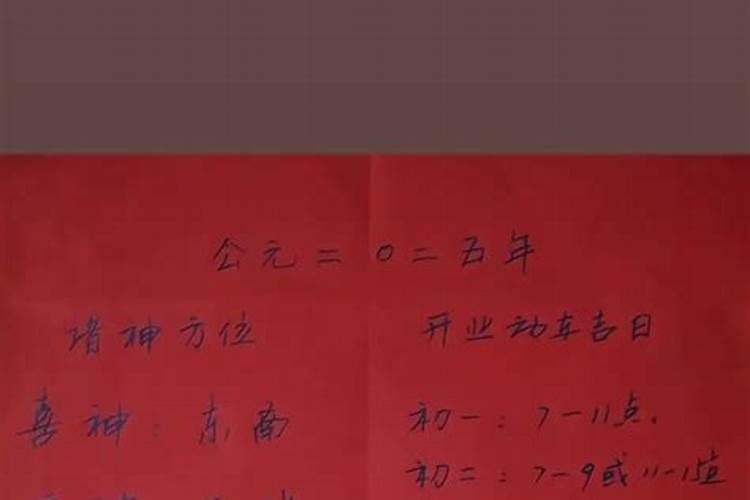 公元二0二五年
诸神方位
喜神：东南
开业动车吉日
初一：7-11点.
初二：7-9或11-1点